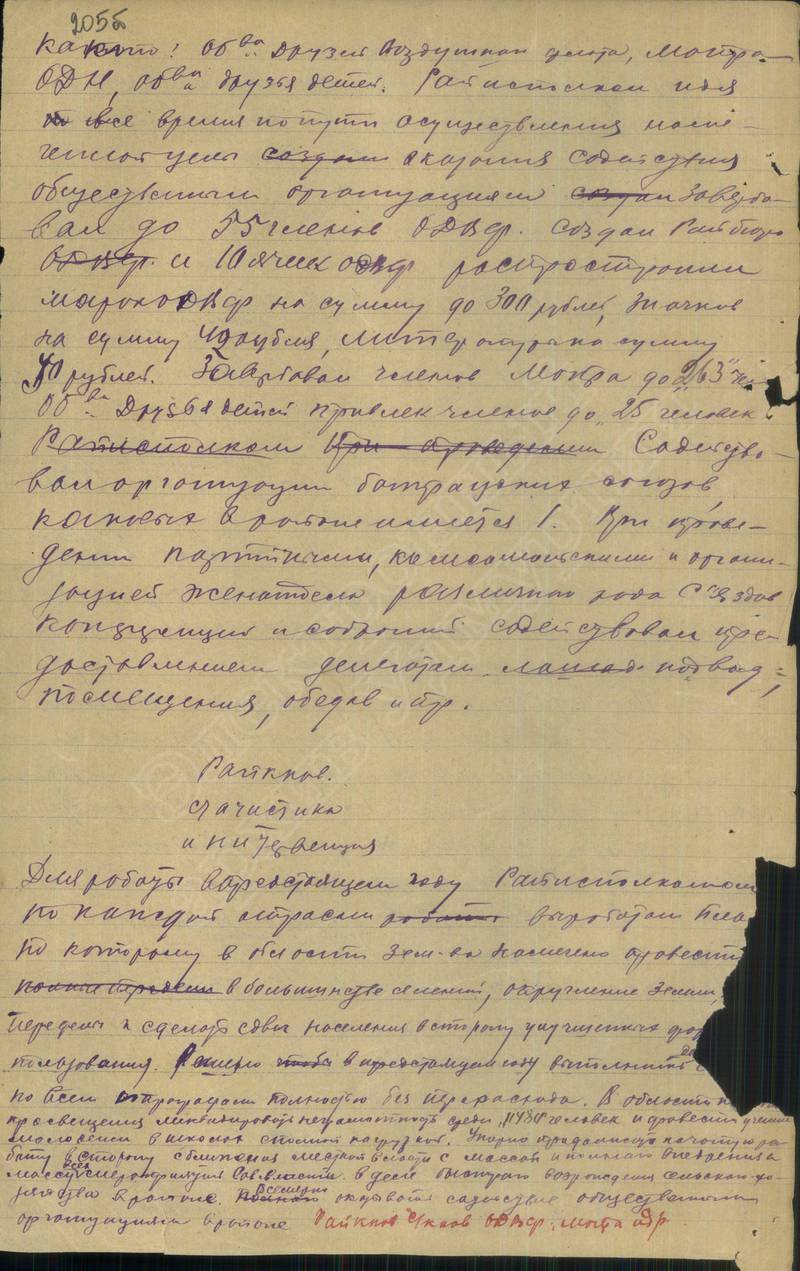 205б
как то: Об ва Друзей Воздушного флота, Мопра
ОДН, об ва друзья детей. Райисполком идя
все время по пути осуществления наме-
ченной цели оказания содействия
общественным организациям завербо-
вал до 55 членов ОДВФ. создал Райбюро
ОДВФ и 10 ячеек ОДВФ распространил
марок ОДВФ на сумму до 300 рублей, значков
на сумму рубля, литературы на сумму
рублей. Завербовал членов Мопра до „263"
Об ва Друзья детей привлек членов до „25 человек
Райисполком при проведении Содейство-
вал организации батрацких союзов,
каковых в районе имеется 1. При прове-
дении партийными, комсомольскими и органи-
зацией женотдела различного рода с'ездов
конференций и собраний содействовал пре-
доставлением делегатам подвод,
помещения, обедов и пр.
Райкков.
статистика
и интервенция
Для работы в предстоящем году Райисполкомом
по каждой отрасли работы выработан пла
по которому в области Зем-ва намечено провести
в большинстве селений, округление Земли,
переделы и сделать сдвиг населения в сторону улучшенных фор
пользования. Решено в предстоящем году выполнить
по всем полностью без перерасхода. В области
просвещения ликвидировать неграмотность среди „1430" человек и провести учение
в школах с полной нагрузкой. Упорно продолжить начатую ра-
боту в сторону сближения местной власти с массой и полного внедрения в
массы всех мероприятий Совласти в деле быстрого возрождения сельского хо-
зяйства в районе. Всемерно оказывать содействие общественным
организациям в районе Райкпов Уков ОДВФ, мопра и др